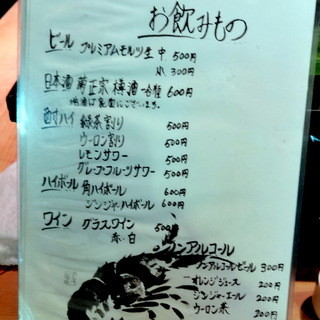 お飲みもの
ビール プレミアムモルツ生 中 500円
小 300円
日本酒 菊正宗 樽酒 一合 600円
地酒は裏面にございます。
酎ハイ 緑茶割り 500円
ウーロン割り 500円
レモンサワー 500円
グレープフルーツサワー 500円
ハイボール 角ハイボール 600円
ジンジャーハイボール 600円
ワイン グラスワイン 500
赤・白
ノンアルコール
ノンアルコールビール 300円
オレンジジュース 200円
ジンジャーエール 200円
ウーロン茶 200円